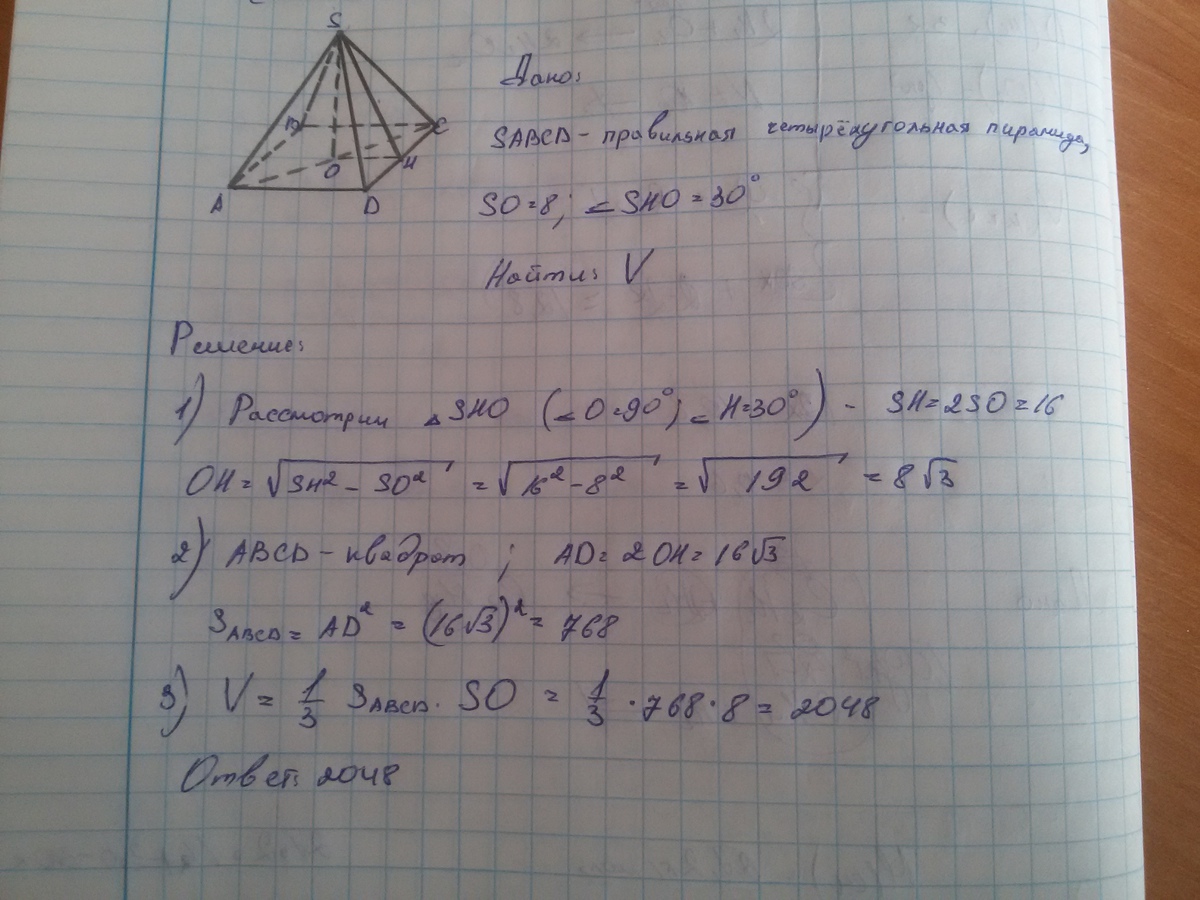 S
B
C
O
H
A
D
Дано:
SABCD - правильная четырёхугольная пирамида,
SO = 8; ∠ SHO = 30°
Найти: V
Решение:
1) Рассмотрим △ SHO (∠ O = 90°; ∠ H = 30°) - SH = 2SO = 16
OH = √SH² - SO² = √16² - 8² = √192 = 8√3
2) ABCD - квадрат ; AD = 2OH = 16√3
S ABCD = AD² = (16√3)² = 768
3) V = 1/3 S ABCD · SO = 1/3 · 768 · 8 = 2048
Ответ: 2048